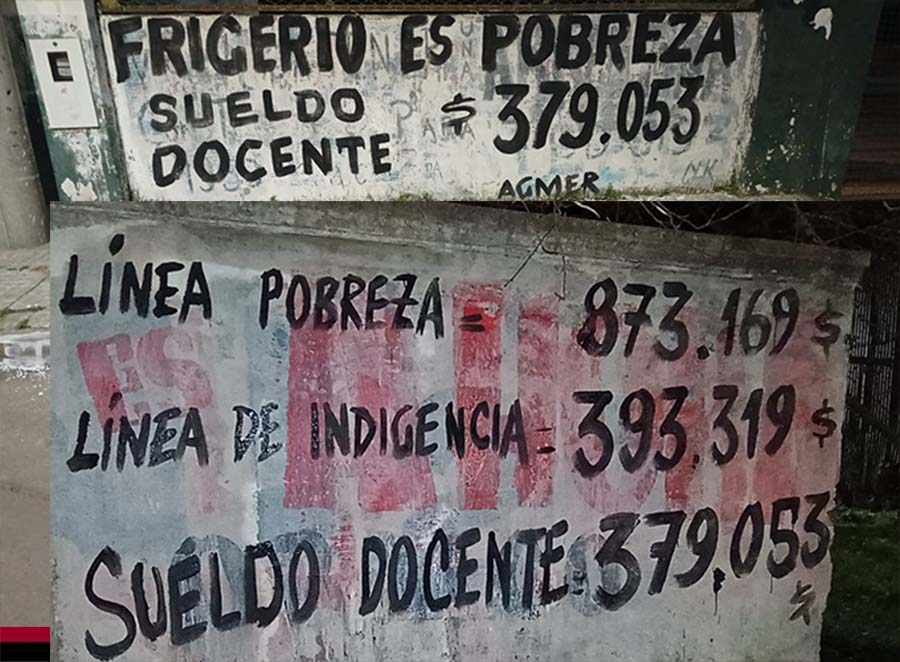 E
FRIGERIO ES POBREZA
SUELDO $ 379.053
DOCENTE
AGMER
LÍNEA POBREZA = 873.169 $
ES
LÍNEA DE INDIGENCIA = 393.319 $
SUELDO DOCENTE: 379.053 $